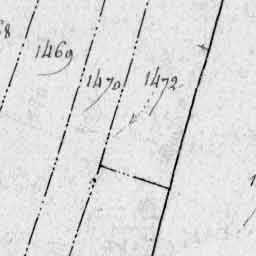 1469
1470
1472